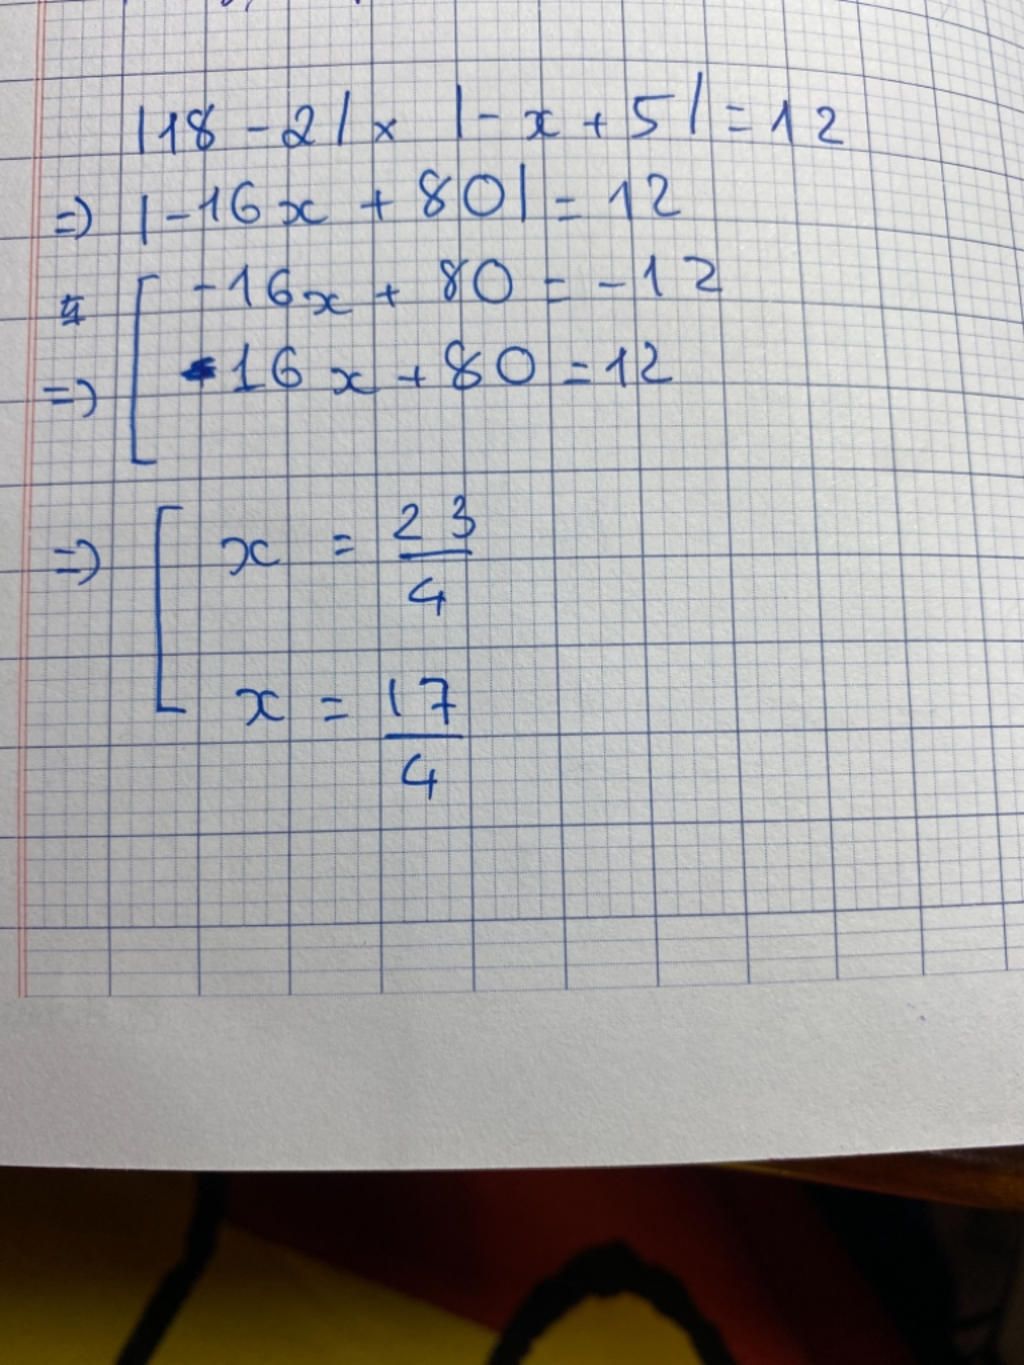 |18 - 2| × |- x + 5| = 12
=> |-16x + 80| = 12
[ -16x + 80 = -12
=> [ -16x + 80 = 12
=> [ x = 23/4
x = 17/4